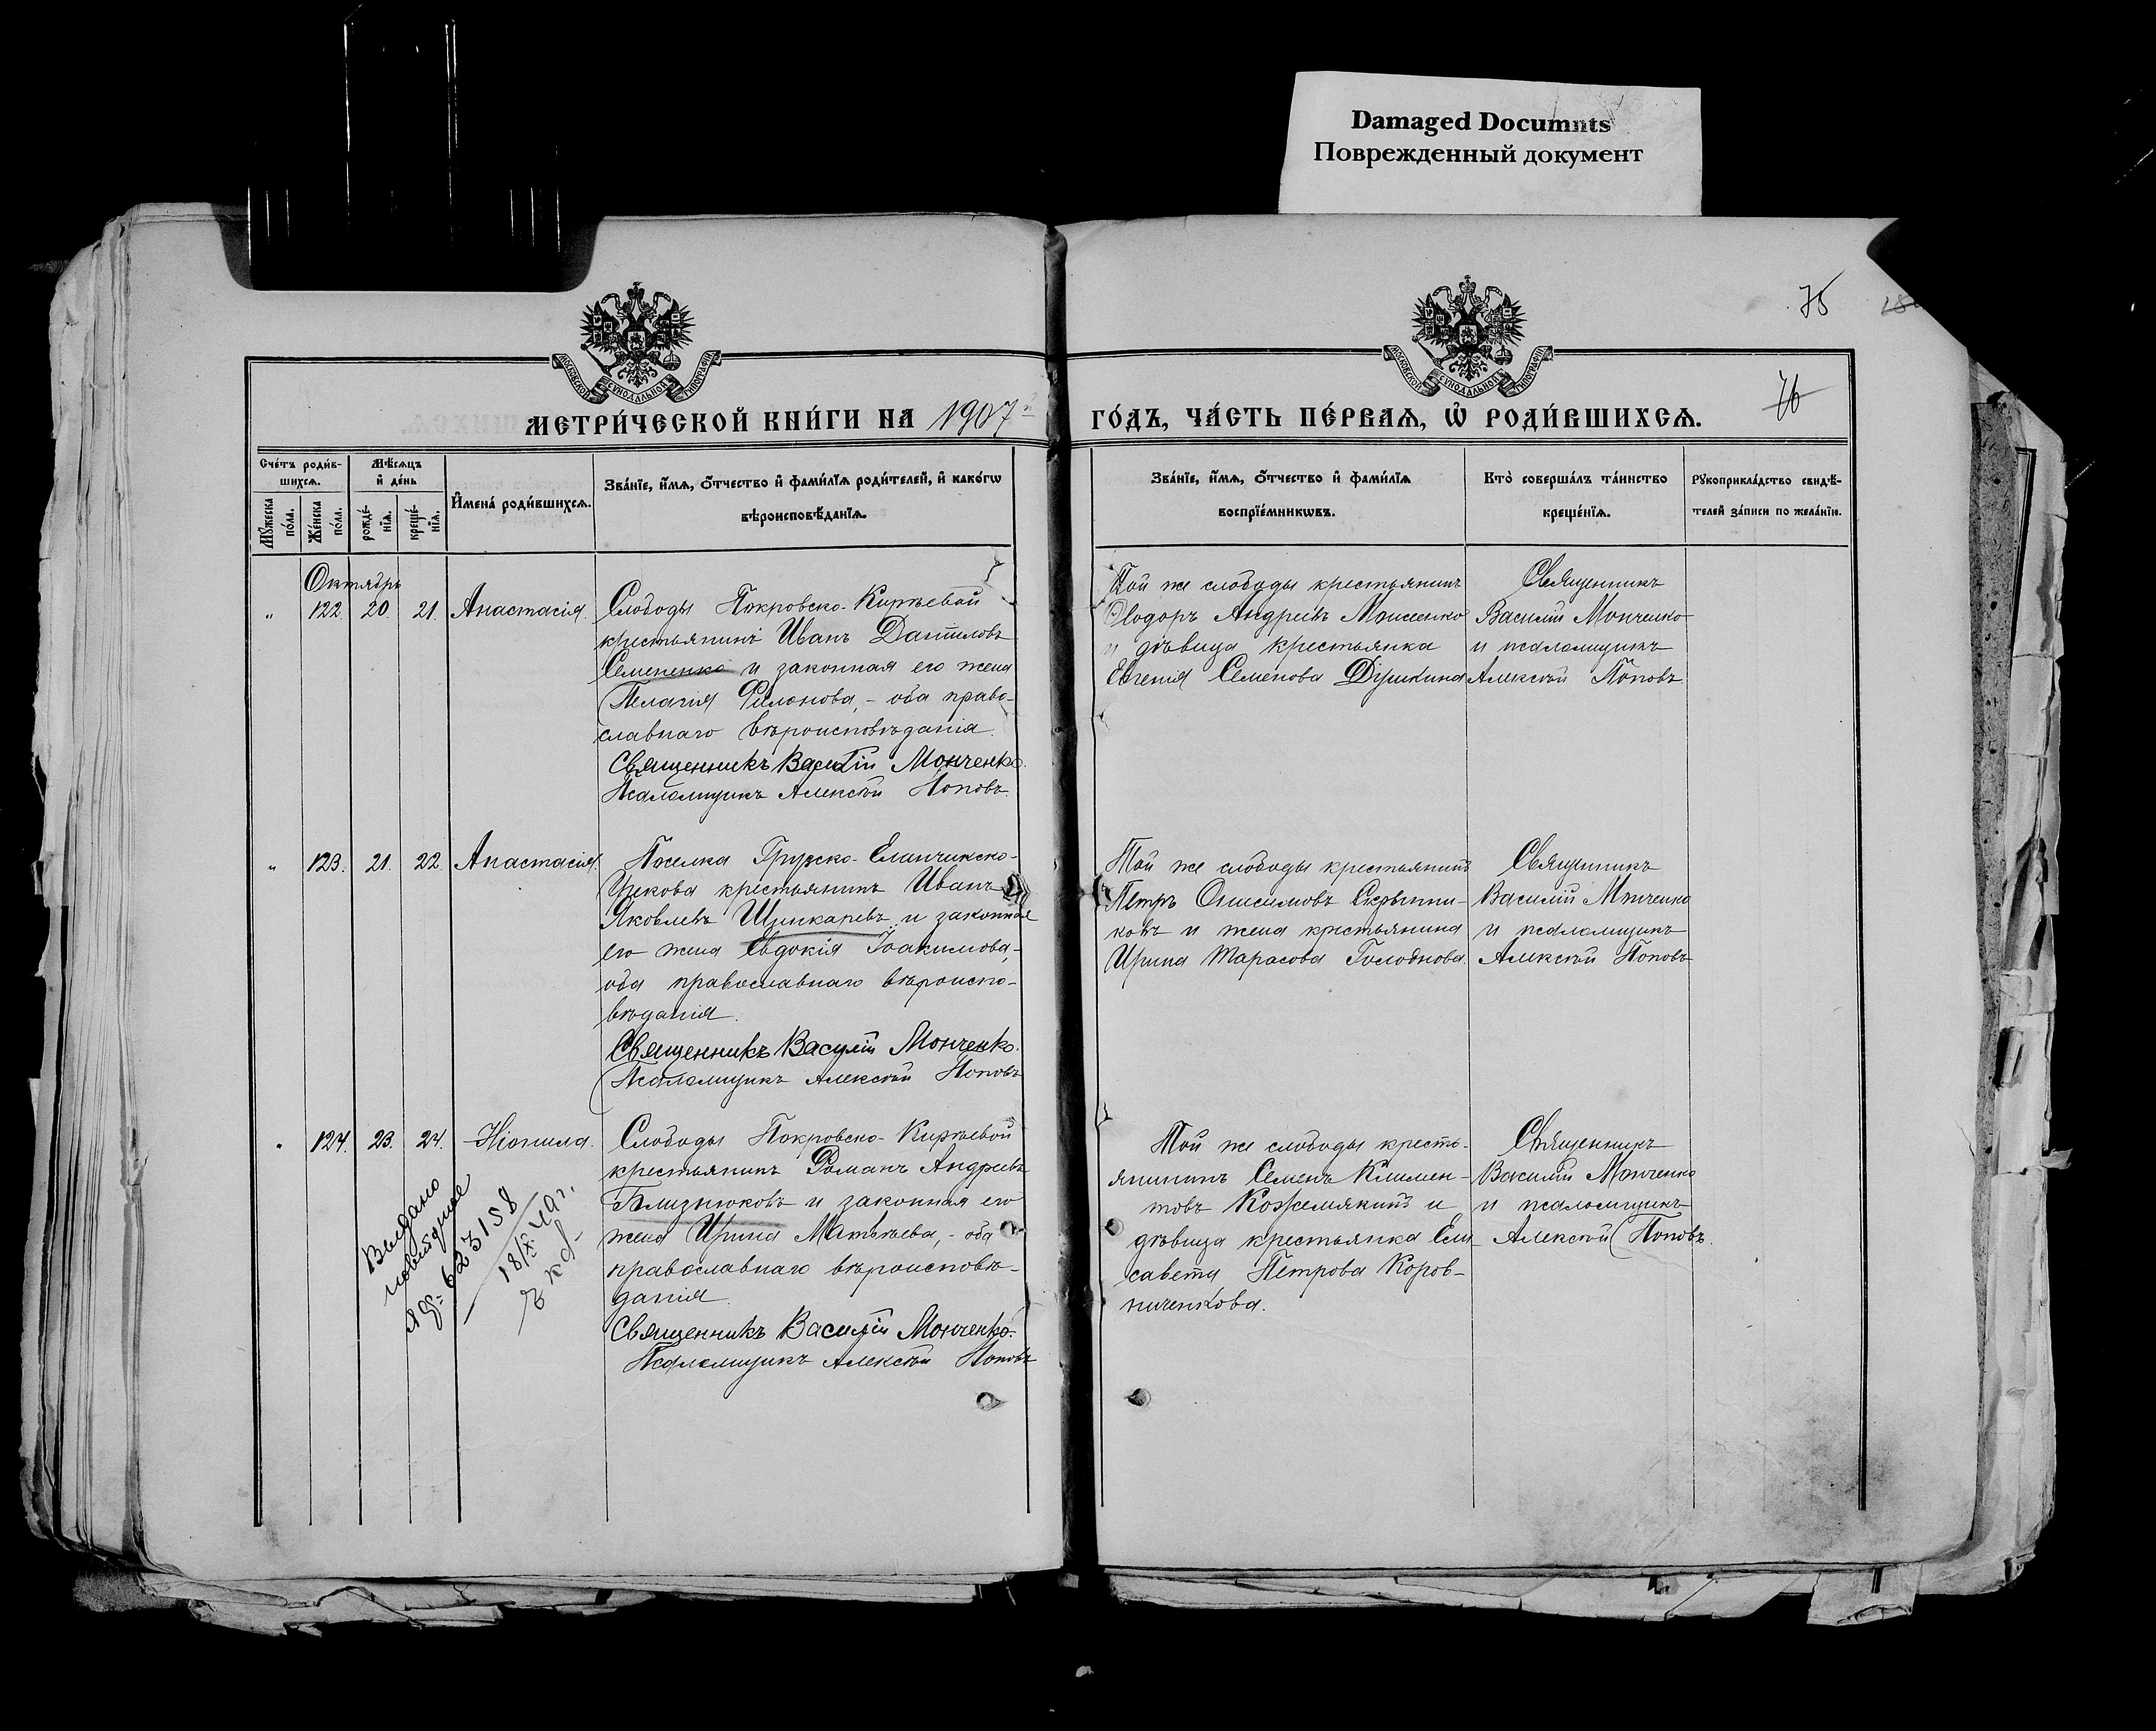 Damaged Documnts
Поврежденный документ
75
76
МОСКОВСКОЙ СѴНОДАЛЬНОЙ ТИПОГРАФІИ
МОСКОВСКОЙ СѴНОДАЛЬНОЙ ТИПОГРАФІИ
МЕТРИ́ЧЕСКОЙ КНИ́ГИ НА 1907й
ГО́ДЪ, ЧА́СТЬ ПЕ́РВАѦ, Ѡ҆ РОДИ́ВШИХСѦ.
Сче́тъ роди́в-
шихсѧ.
Мѣ́сѧцъ
и҆ де́нь
Мꙋ́жеска
по́ла.
Же́нска
по́ла.
рожде́-
нїѧ.
креще́-
нїѧ.
И҆мена̀ роди́вшихсѧ.
Зва́нїе, и҆́мѧ, ѻ҆́тчество и҆ фами́лїѧ роди́телей, и҆ како́гѡ
вѣроисповѣ́данїѧ.
Зва́нїе, и҆́мѧ, ѻ҆́тчество и҆ фами́лїѧ
воспрїе́мникѡвъ.
Кто̀ соверша́лъ та́инство
креще́нїѧ.
Рꙋкоприкла́дство свидѣ́-
телей за́писи по жела́нїю.
Октябрь
" 122. 20. 21. Анастасія.
Слободы Покровско-Киръевой
крестьянинъ Иванъ Даниловъ
Семененко и законная его жена
Пелагія Филонова, - оба право-
славнаго вѣроисповѣданія.
Священникъ Василій Мончен­ко.
Псаломщикъ Алексѣй Поповъ.
Той же слободы крестьянинъ
Ѳеодоръ Андреевъ Моисеенко
и дѣвица крестьянка
Евгенія Семенова Душкина
Священникъ
Василій Монченко
и псаломщикъ
Алексѣй Поповъ.
" 123. 21. 22. Анастасія.
Поселка Грузско-Еланчикско-
крестьянинъ Иванъ
Яковлевъ Шинкаревъ и законная
его жена Евдокія Іоакимова, -
оба православнаго вѣроиспо-
вѣданія.
Священникъ Василій Монченко.
Псаломщикъ Алексѣй Поповъ
Той же слободы крестьянинъ
Петръ Онисимовъ Скрыпни-
ковъ и жена крестьянина
Ирина Тарасова Голоднова.
Священникъ
Василій Монченко
и псаломщикъ
Алексѣй Поповъ
" 124. 23. 24. Неонила.
Слободы Покровско-Киръевой
крестьянинъ Романъ Андреевъ
Близнюковъ и законная его
жена Ирина Матвѣева, - оба
православнаго вѣроисповѣ-
данія.
Священникъ Василій Монченко.
Псаломщикъ Алексѣй Поповъ
Той же слободы кресть-
янинъ Семенъ Климен-
товъ Кожемякинъ и
дѣвица крестьянка Ели-
савета Петрова Коров-
ниченкова.
Священникъ
Василій Монченко
и псаломщикъ
Алексѣй Поповъ.
Выдано
623158
18/X 49 г.